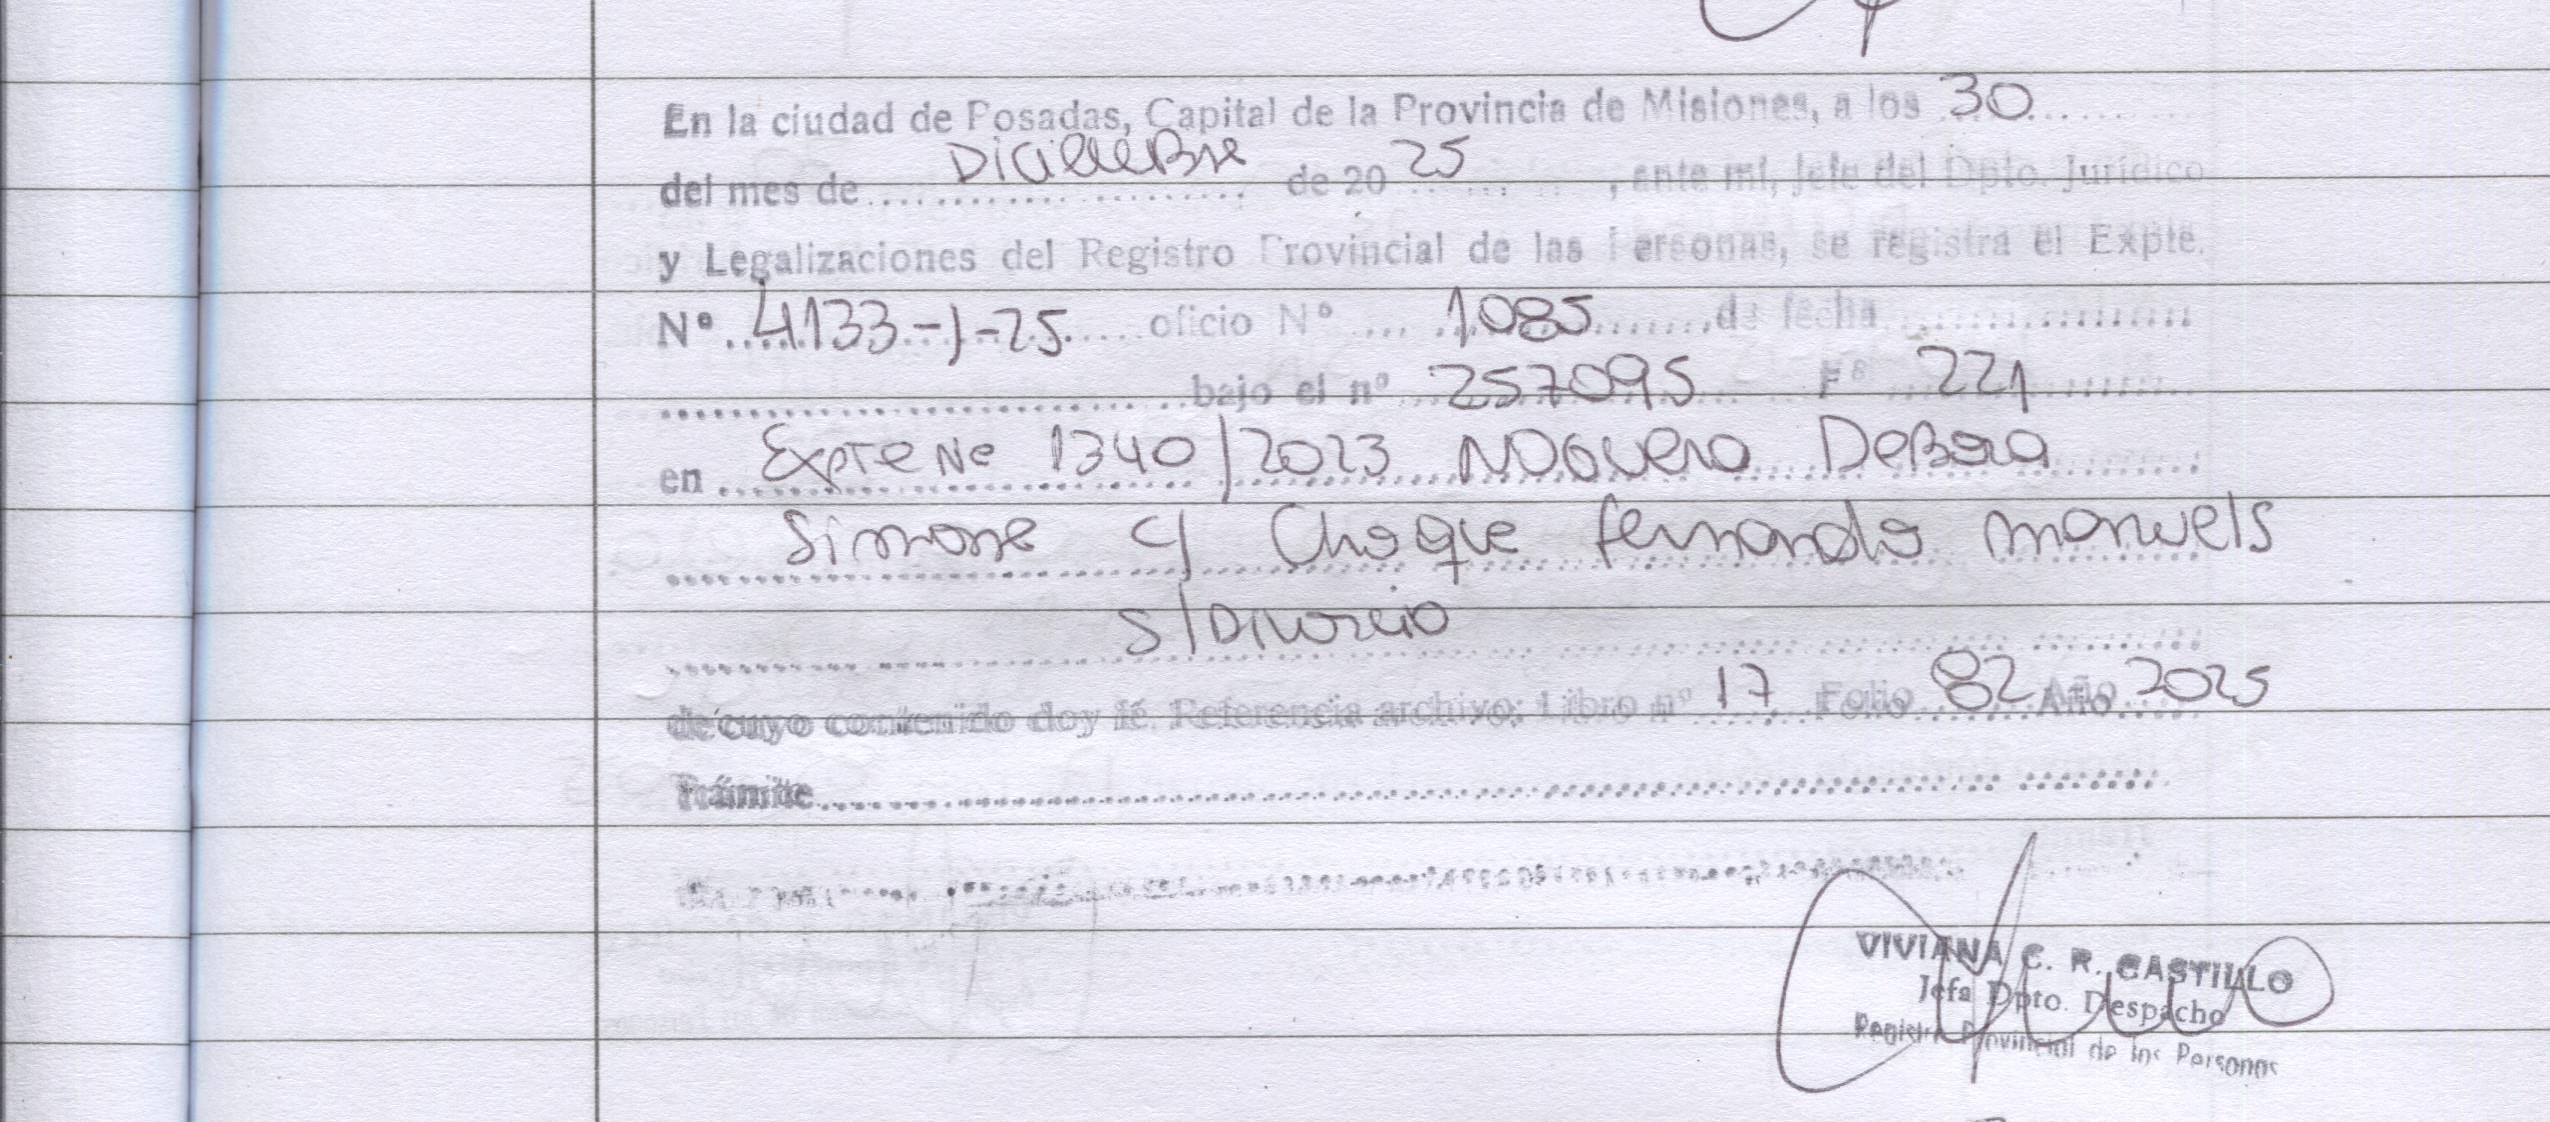 En la ciudad de Posadas, Capital de la Provincia de Misiones, a los 30
del mes de Diciembre de 20 25, ante mí, Jefe del Dpto. Jurídico
y Legalizaciones del Registro Provincial de las Personas, se registra el Expte.
Nº 4133-J-25 oficio Nº 1085 de fecha
bajo el nº 257095 Fº 221
en Expte Nº 1340/2023 Noguera Debora
Simone c/ Choque Fernando Manuel s
s/Divorcio
de cuyo contenido doy fé. Referencia archivo: Libro nº 17 Folio 82 Año 2025
Trámite
VIVIANA C. R. CASTILLO
Jefa Dpto. Despacho
Registro Provincial de las Personas